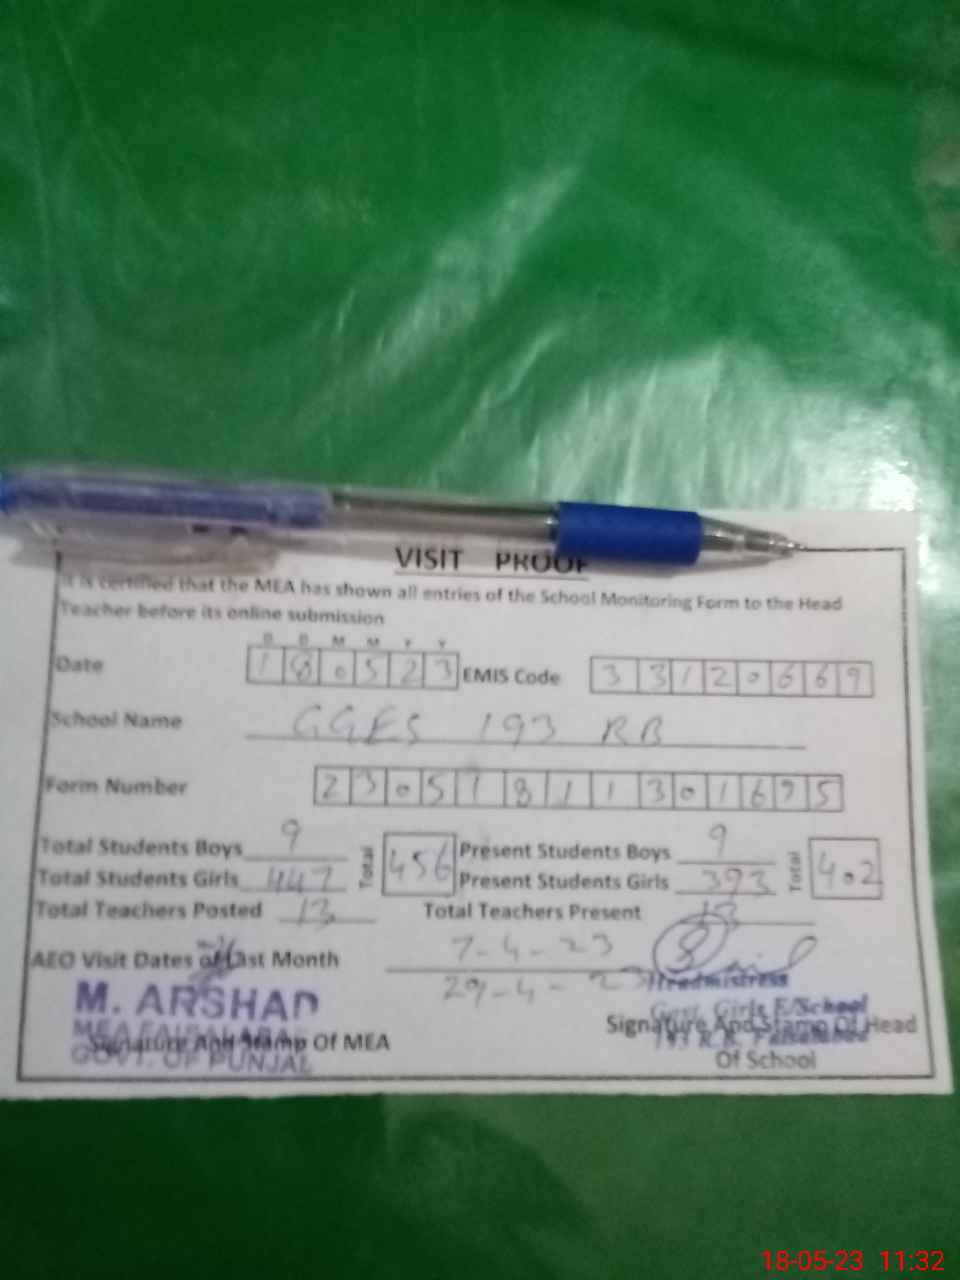 VISIT PROOF
It is certified that the MEA has shown all entries of the School Monitoring Form to the Head
Teacher before its online submission
D D M M Y Y
Date 180523 EMIS Code 33120669
School Name GGES 193 RB
Form Number 23051811301695
Total Students Boys 9 Total 456 Present Students Boys 9 Total 402
Total Students Girls 447 Present Students Girls 393
Total Teachers Posted 13 Total Teachers Present 13
AEO Visit Dates of Last Month 7-4-23
29-4-23
M. ARSHAD
MEA FAISALABAD
GOVT. OF PUNJAB
Signature And Stamp Of MEA
Headmistress
Govt. Girls E/School
193 R.B. Faisalabad
Signature And Stamp Of Head
Of School
18-05-23 11:32